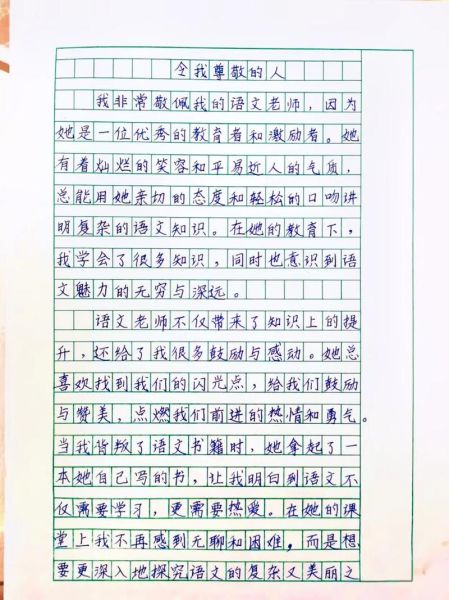 令我尊敬的人
我非常敬佩我的语文老师，因为
她是一位优秀的教育者和激励者。她
有着灿烂的笑容和平易近人的气质，
总能用她亲切的态度和轻松的口吻讲
明复杂的语文知识。在她的教育下，
我学会了很多知识，同时也意识到语
文魅力的无穷与深远。
语文老师不仅带来了知识上的提
升，还给了我很多鼓励与感动。她总
喜欢找到我们的闪光点，给我们鼓励
与赞美，点燃我们前进的热情和勇气。
当我背叛了语文书籍时，她拿起了一
本她自己写的书，让我明白到语文不
仅需要学习，更需要热爱。在她的课
堂上我不再感到无聊和困难，而是想
要更深入地探究语文的复杂又美丽之